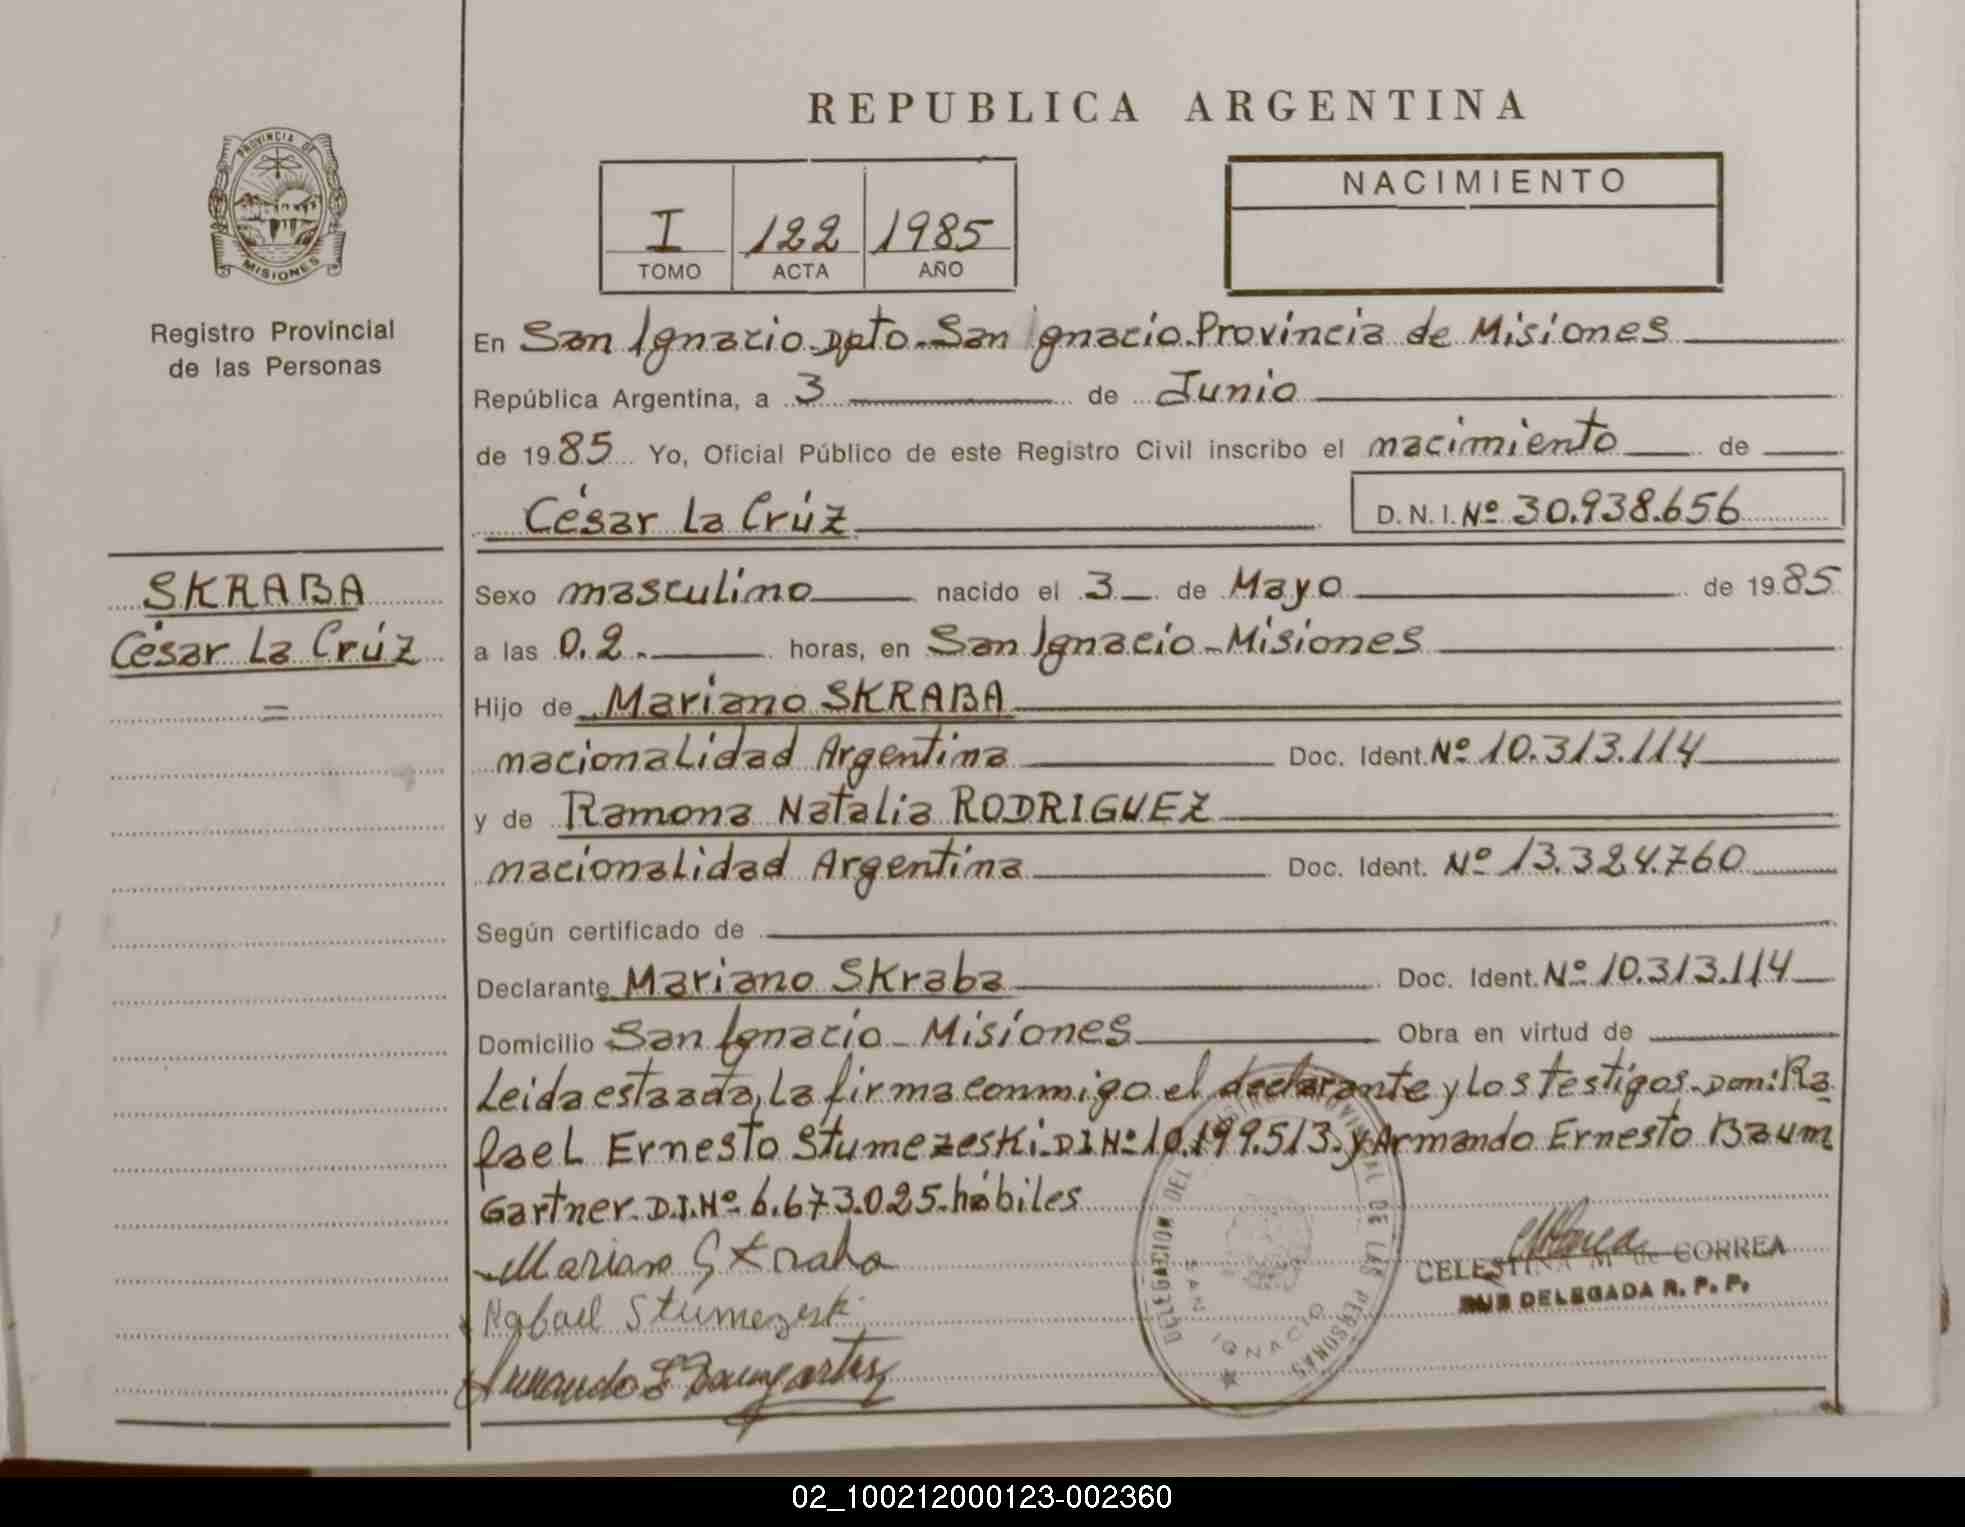 REPUBLICA ARGENTINA
PROVINCIA DE
MISIONES
Registro Provincial
de las Personas
I 122 1985
TOMO ACTA AÑO
NACIMIENTO
En San Ignacio Dpto. San Ignacio. Provincia de Misiones
República Argentina, a 3 de Junio
de 1985 Yo, Oficial Público de este Registro Civil inscribo el nacimiento de
César La Crúz D.N.I. Nº 30.938.656
SKRABA
César La Crúz
=
Sexo masculino nacido el 3 de Mayo de 1985
a las 0.2. horas, en San Ignacio - Misiones
Hijo de Mariano SKRABA
nacionalidad Argentina Doc. Ident. Nº 10.313.114
y de Ramona Natalia RODRIGUEZ
nacionalidad Argentina Doc. Ident. Nº 13.324.760
Según certificado de
Declarante Mariano Skraba Doc. Ident. Nº 10.313.114
Domicilio San Ignacio - Misiones Obra en virtud de
Leida esta acta, la firma conmigo el declarante y los testigos - Don: Ra
fael Ernesto Stumezeski - D.I Nº 10.199.513. y Armando Ernesto Baum
Gartner - D.I. Nº 6.673.025 - hábiles
Mariano Skraba
Rafael Stumezeski
Armando E Baumgartner
DELEGACION DEL REGISTRO PROVINCIAL DE LAS PERSONAS
SAN IGNACIO
CELESTINA M de CORREA
SUB DELEGADA R. P. P.
02_100212000123-002360